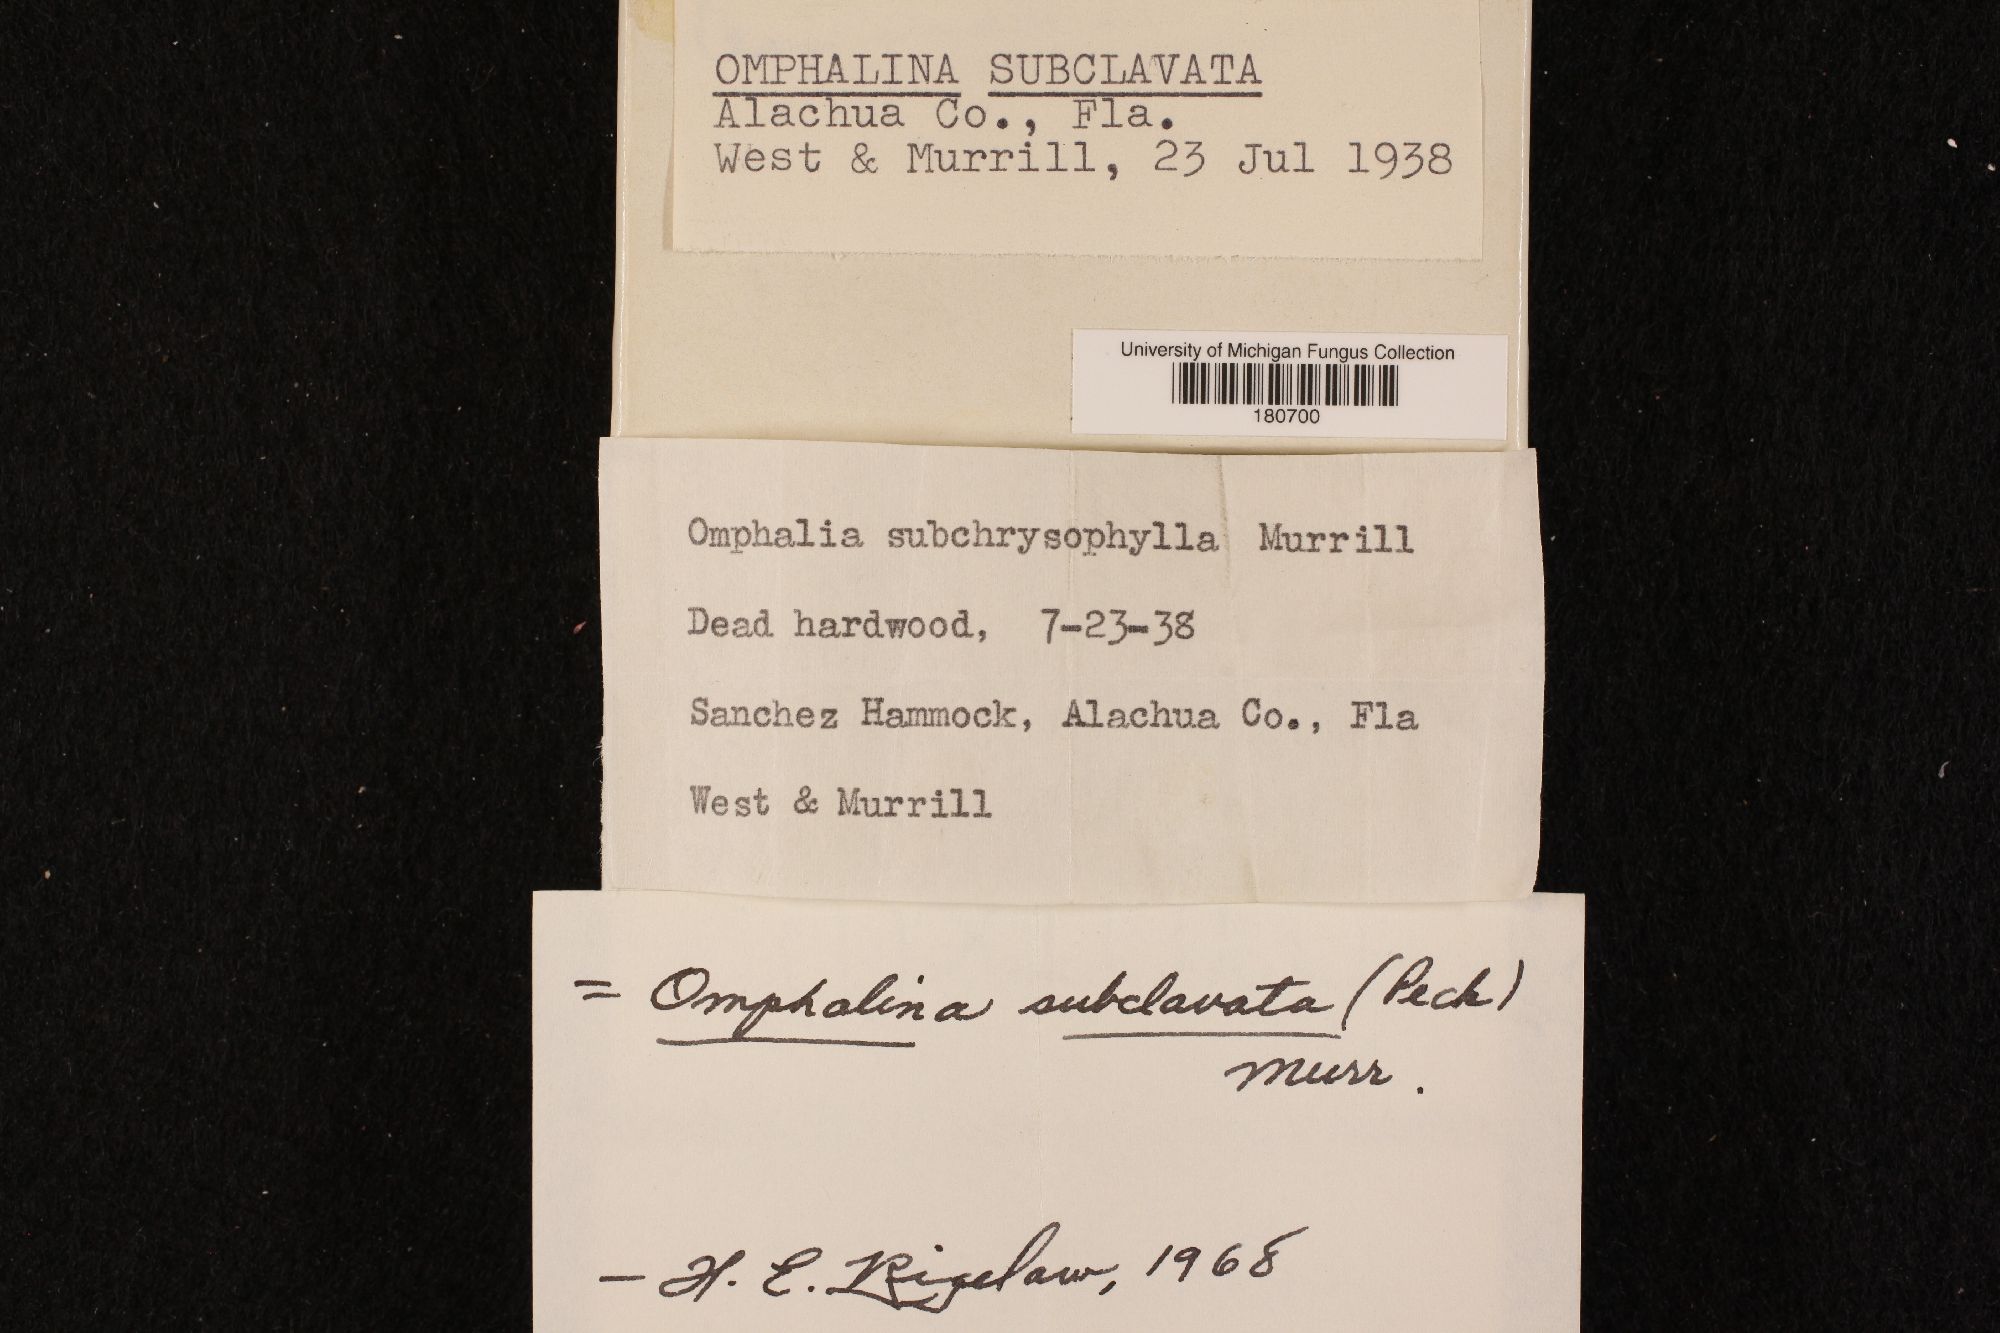 OMPHALINA SUBCLAVATA
Alachua Co., Fla.
West & Murrill, 23 Jul 1938
University of Michigan Fungus Collection
180700
Omphalia subchrysophylla Murrill
Dead hardwood, 7-23-38
Sanchez Hammock, Alachua Co., Fla
West & Murrill
= Omphalina subclavata (Peck)
Murr.
— H. E. Bigelow, 1968